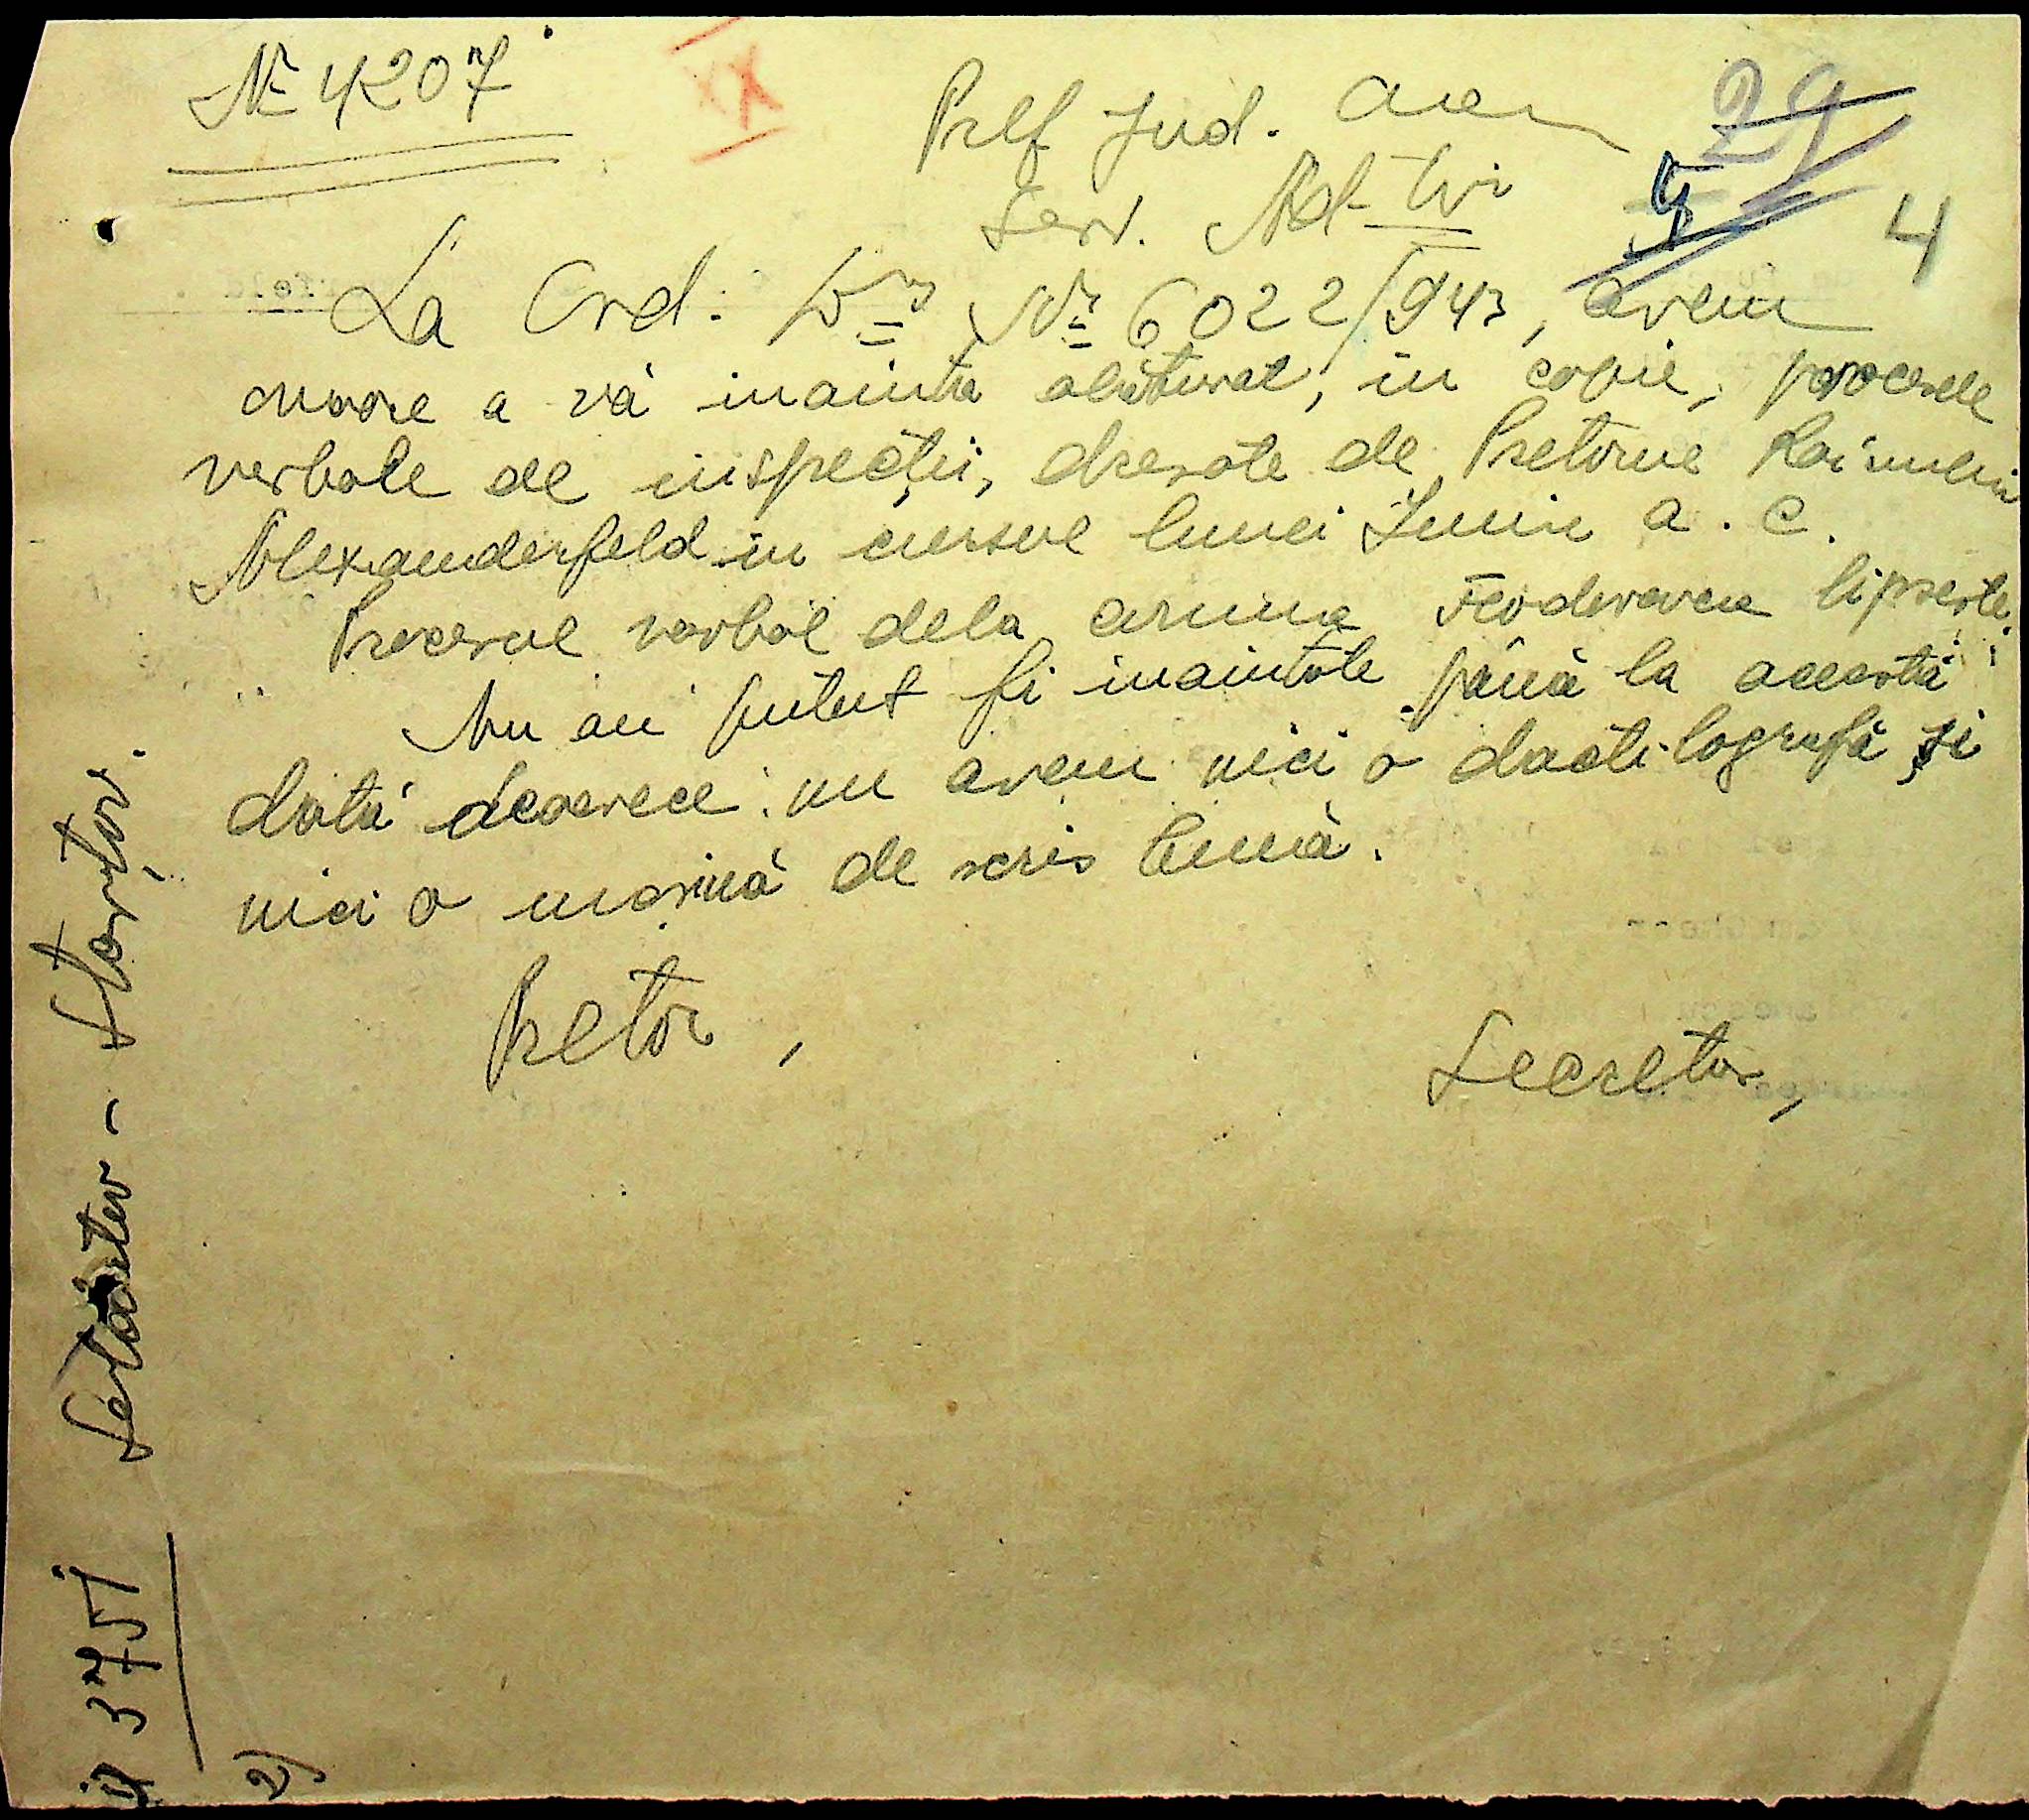 Nr 4207
XX
Pref Jud.
29
Serv. Ad-tiv
5
4
La Ord. Dvs Nr 6022/943, avem
onoare a vă inainta alăturat, in copie, procesele
verbale de inspecții, dresate de Pretorul Raionului
Alexanderfeld in cursul lunei Iunie a. c.
Procesul verbal dela comuna Feoderovca lipsește.
Nu au putut fi inaintate până la această
dată deoarece nu avem nici o dactilografă și
nici o mașină de scris bună.
Pretor,
Secretar,
3751
2)